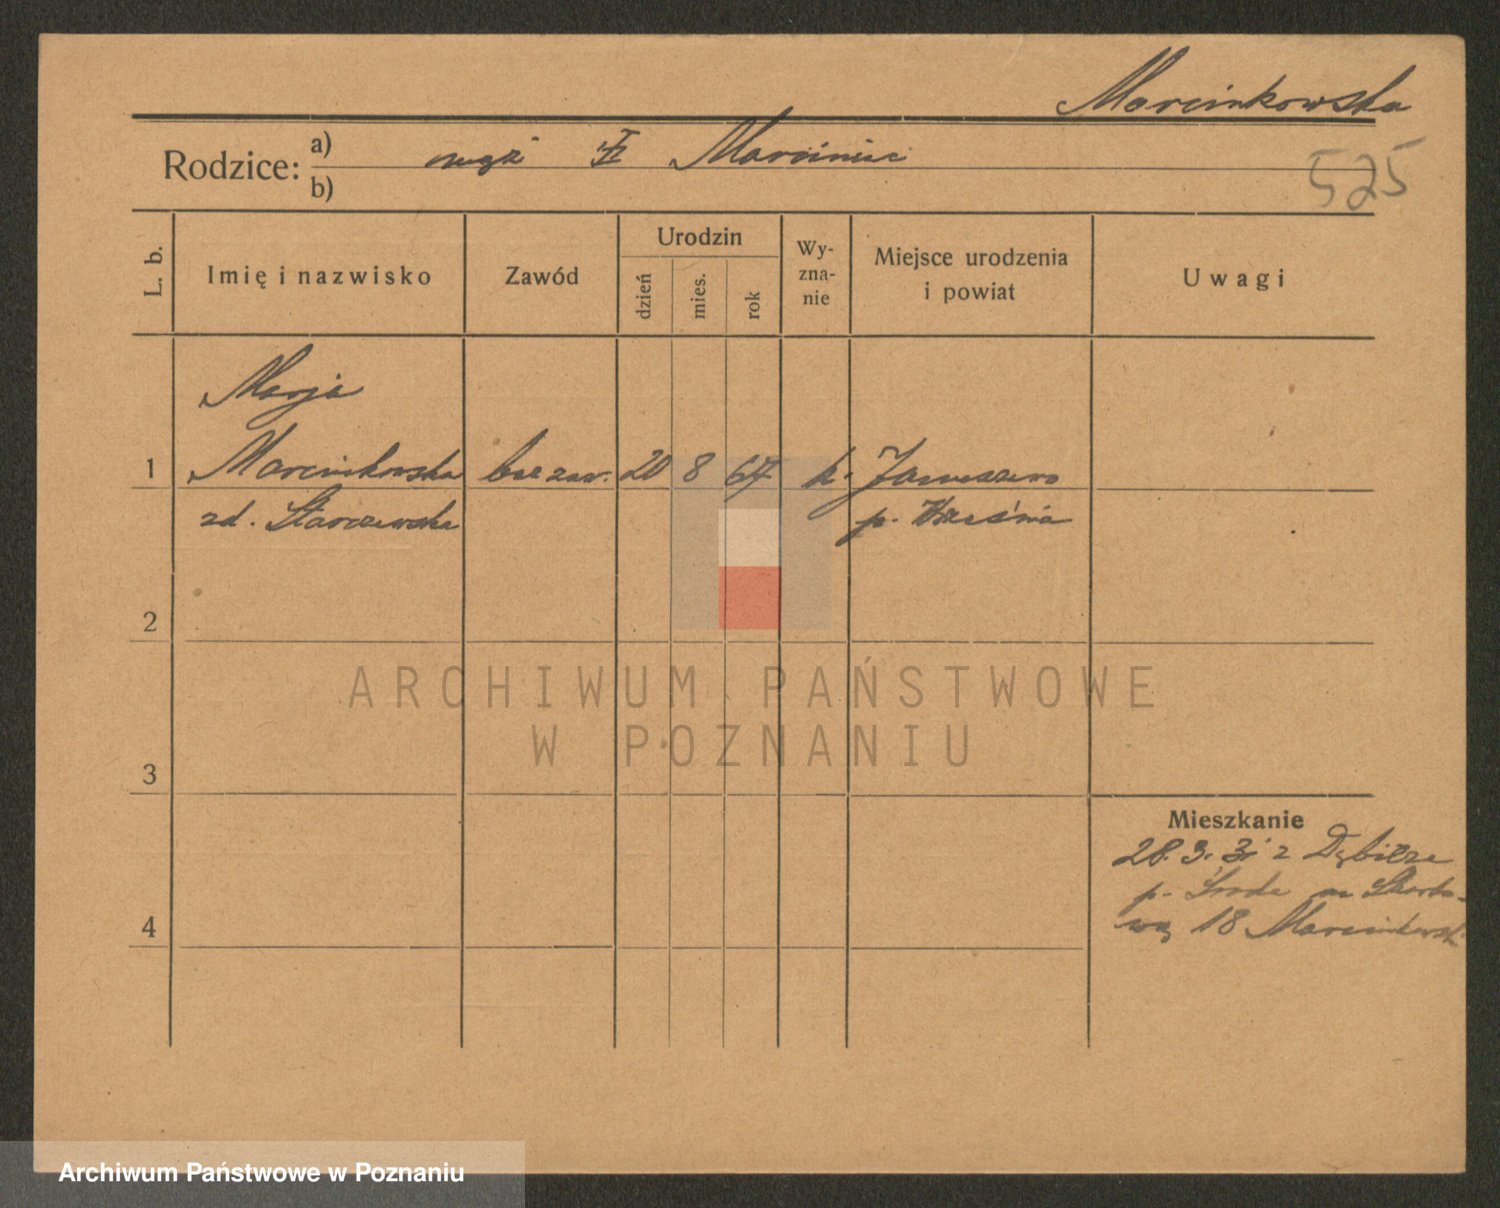 Marcinkowska
Rodzice: a) mąż † Marciniec
b)
525
L. b.
Imię i nazwisko
Zawód
Urodzin
dzień
mies.
rok
Wy-
zna-
nie
Miejsce urodzenia
i powiat
Uwagi
Marja
1 Marcinkowska bez zaw. 20 8 67 k. Januszewo
zd. Starczewska p. Września
2
3
4
Mieszkanie
28. 3. 31 z Dębicza
p. Środa na Skarbo-
wą 18 Marcinkowsk
ARCHIWUM PAŃSTWOWE
W POZNANIU
Archiwum Państwowe w Poznaniu